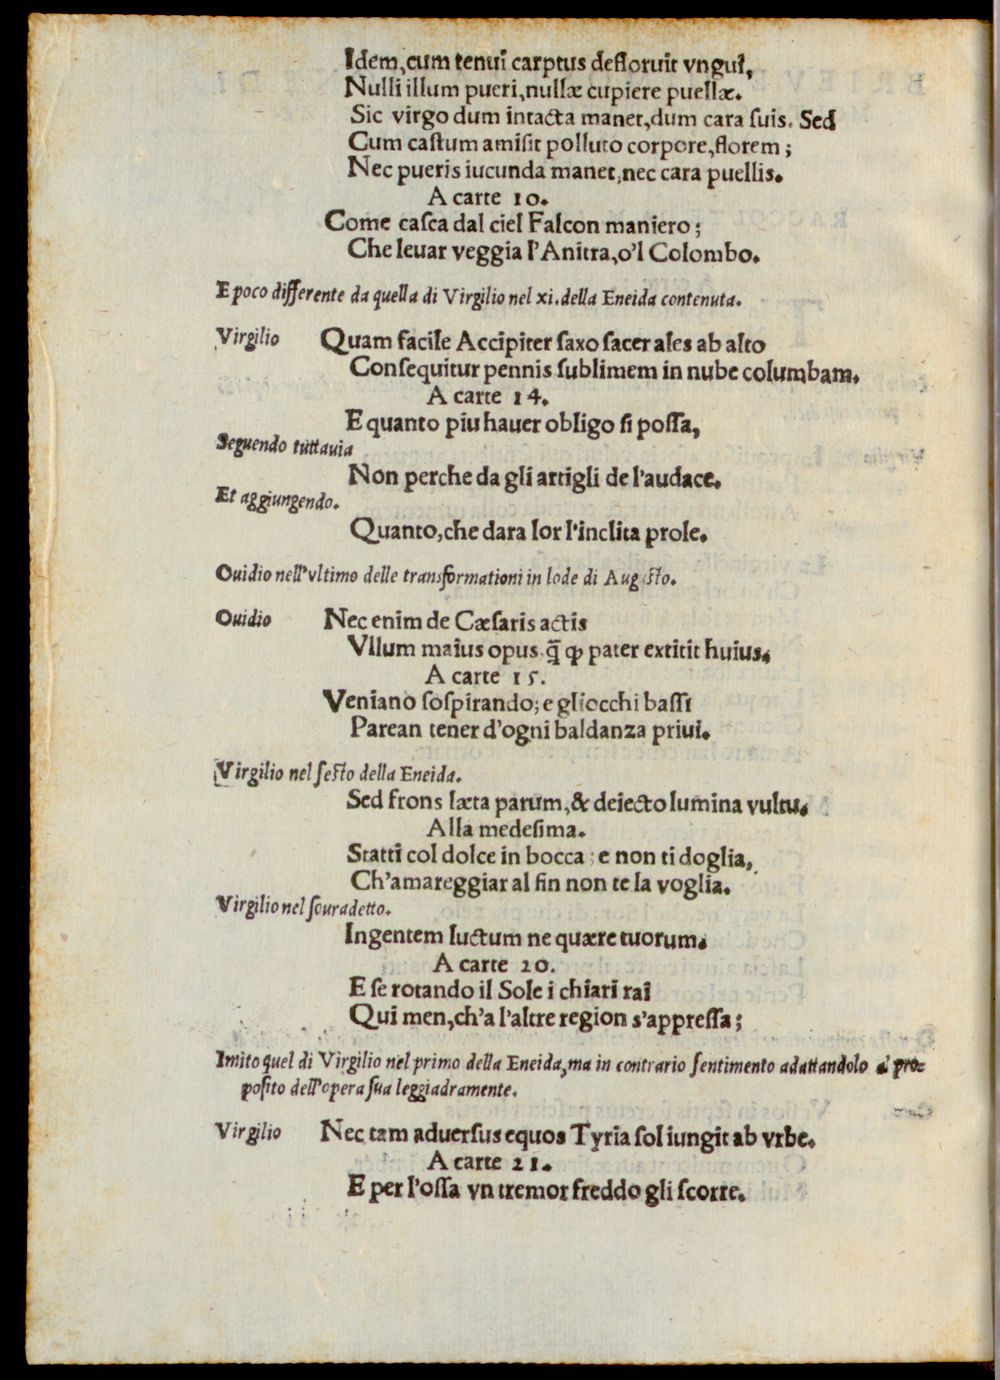 Idem, cum tenui carptus defloruit vngui,
Nulli illum pueri, nullæ cupiere puellæ.
Sic virgo dum intacta manet, dum cara suis. Sed
Cum castum amisit polluto corpore, florem;
Nec pueris iucunda manet, nec cara puellis.
A carte 10.
Come casca dal ciel Falcon maniero;
Che leuar veggia l'Anitra, o'l Colombo.
E poco differente da quella di Virgilio nel xi. della Eneida contenuta.
Virgilio Quam facile Accipiter saxo sacer ales ab alto
Consequitur pennis sublimem in nube columbam.
A carte 14.
E quanto piu hauer obligo si possa,
Seguendo tuttauia
Non perche da gli artigli de l'audace.
Et aggiungendo.
Quanto, che dara lor l'inclita prole.
Ouidio nell'vltimo delle transformationi in lode di Augusto.
Ouidio Nec enim de Cæsaris actis
Vllum maius opus. q̃ ꝙ pater extitit huius.
A carte 15.
Veniano sospirando; e gliocchi bassi
Parean tener d'ogni baldanza priui.
Virgilio nel sesto della Eneida.
Sed frons læta parum, & deiecto lumina vultu.
Alla medesima.
Statti col dolce in bocca; e non ti doglia,
Ch'amareggiar al fin non te la voglia.
Virgilio nel souradetto.
Ingentem luctum ne quære tuorum.
A carte 20.
E se rotando il Sole i chiari rai
Qui men, ch'a l'altre region s'appressa;
Imito quel di Virgilio nel primo della Eneida, ma in contrario sentimento adattandolo al pro-
posito dell'opera sua leggiadramente.
Virgilio Nec tam aduersus equos Tyria sol iungit ab vrbe.
A carte 21.
E per l'ossa vn tremor freddo gli scorre.